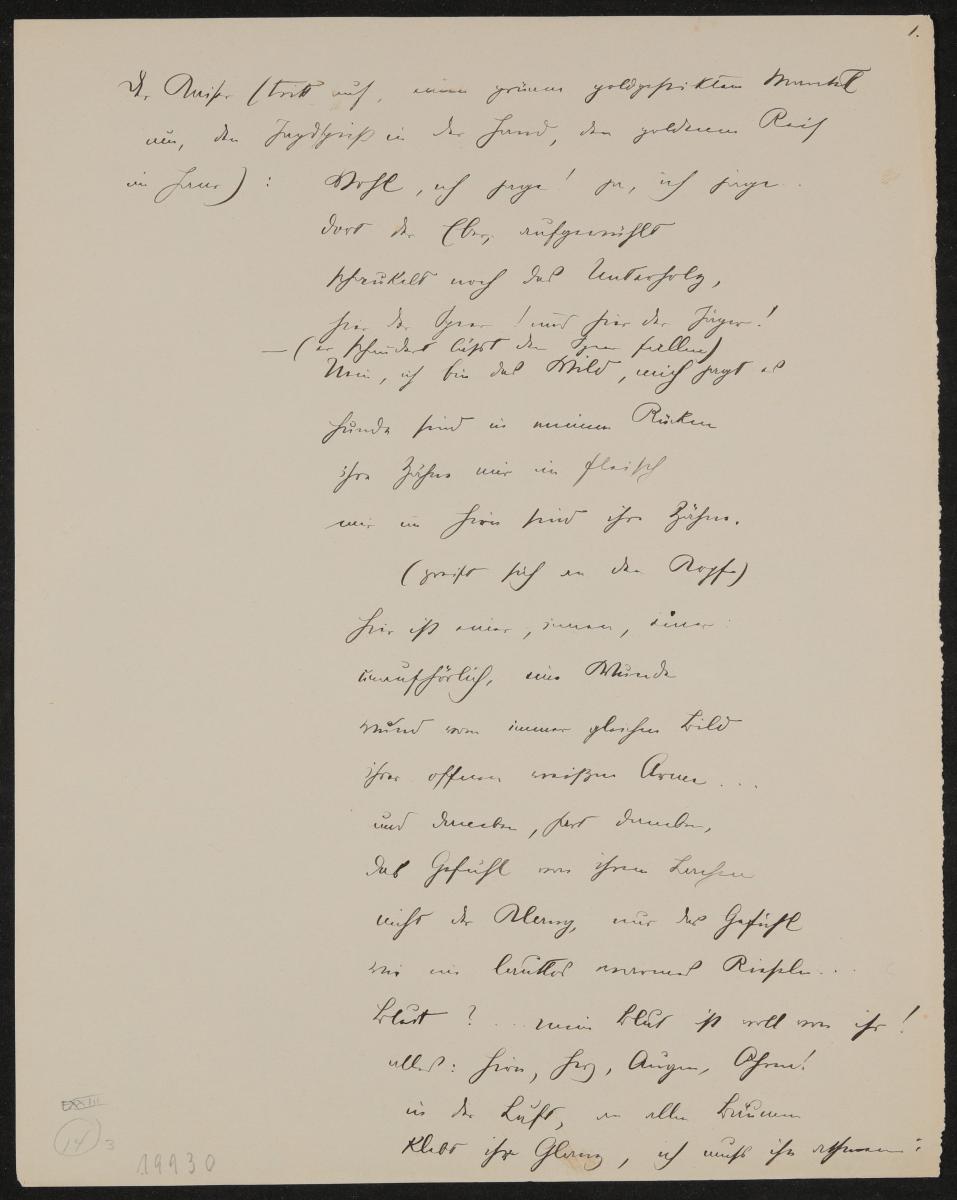 1.
Der Kaiser (tritt auf, einen grünen goldgestickten Mantel
um, den Jagdspieß in der Hand, den goldenen Reif
im Haar) : Wohl, ich jage! ja, ich jage..
dort der Eber, aufgewühlt
schaukelt noch das Unterholz,
hier der Speer! und hier der Jäger!
— (er schaudert läßt den Speer fallen)
Nein, ich bin das Wild, mich jagt es
Hunde sind in meinem Rücken
ihre Zähne mir im Fleisch
mir im Hirn sind ihre Zähne.
(greift sich an den Kopf)
Hier ist einer, innen, einer
unaufhörlich, eine Wunde
wund vom immer gleichen Bild
ihrer offnen weißen Arme ...
und daneben, hart daneben,
das Gefühl von ihrem Lachen
nicht der Klang, nur das Gefühl
wie ein lautlos warmes Rieseln...
Blut? .. mein Blut ist voll von ihr!
alles: Hirn, Herz, Augen, Ohren!
in der Luft, an allen Bäumen
klebt ihr Glanz, ich muß ihn athmen:
14
3
19930